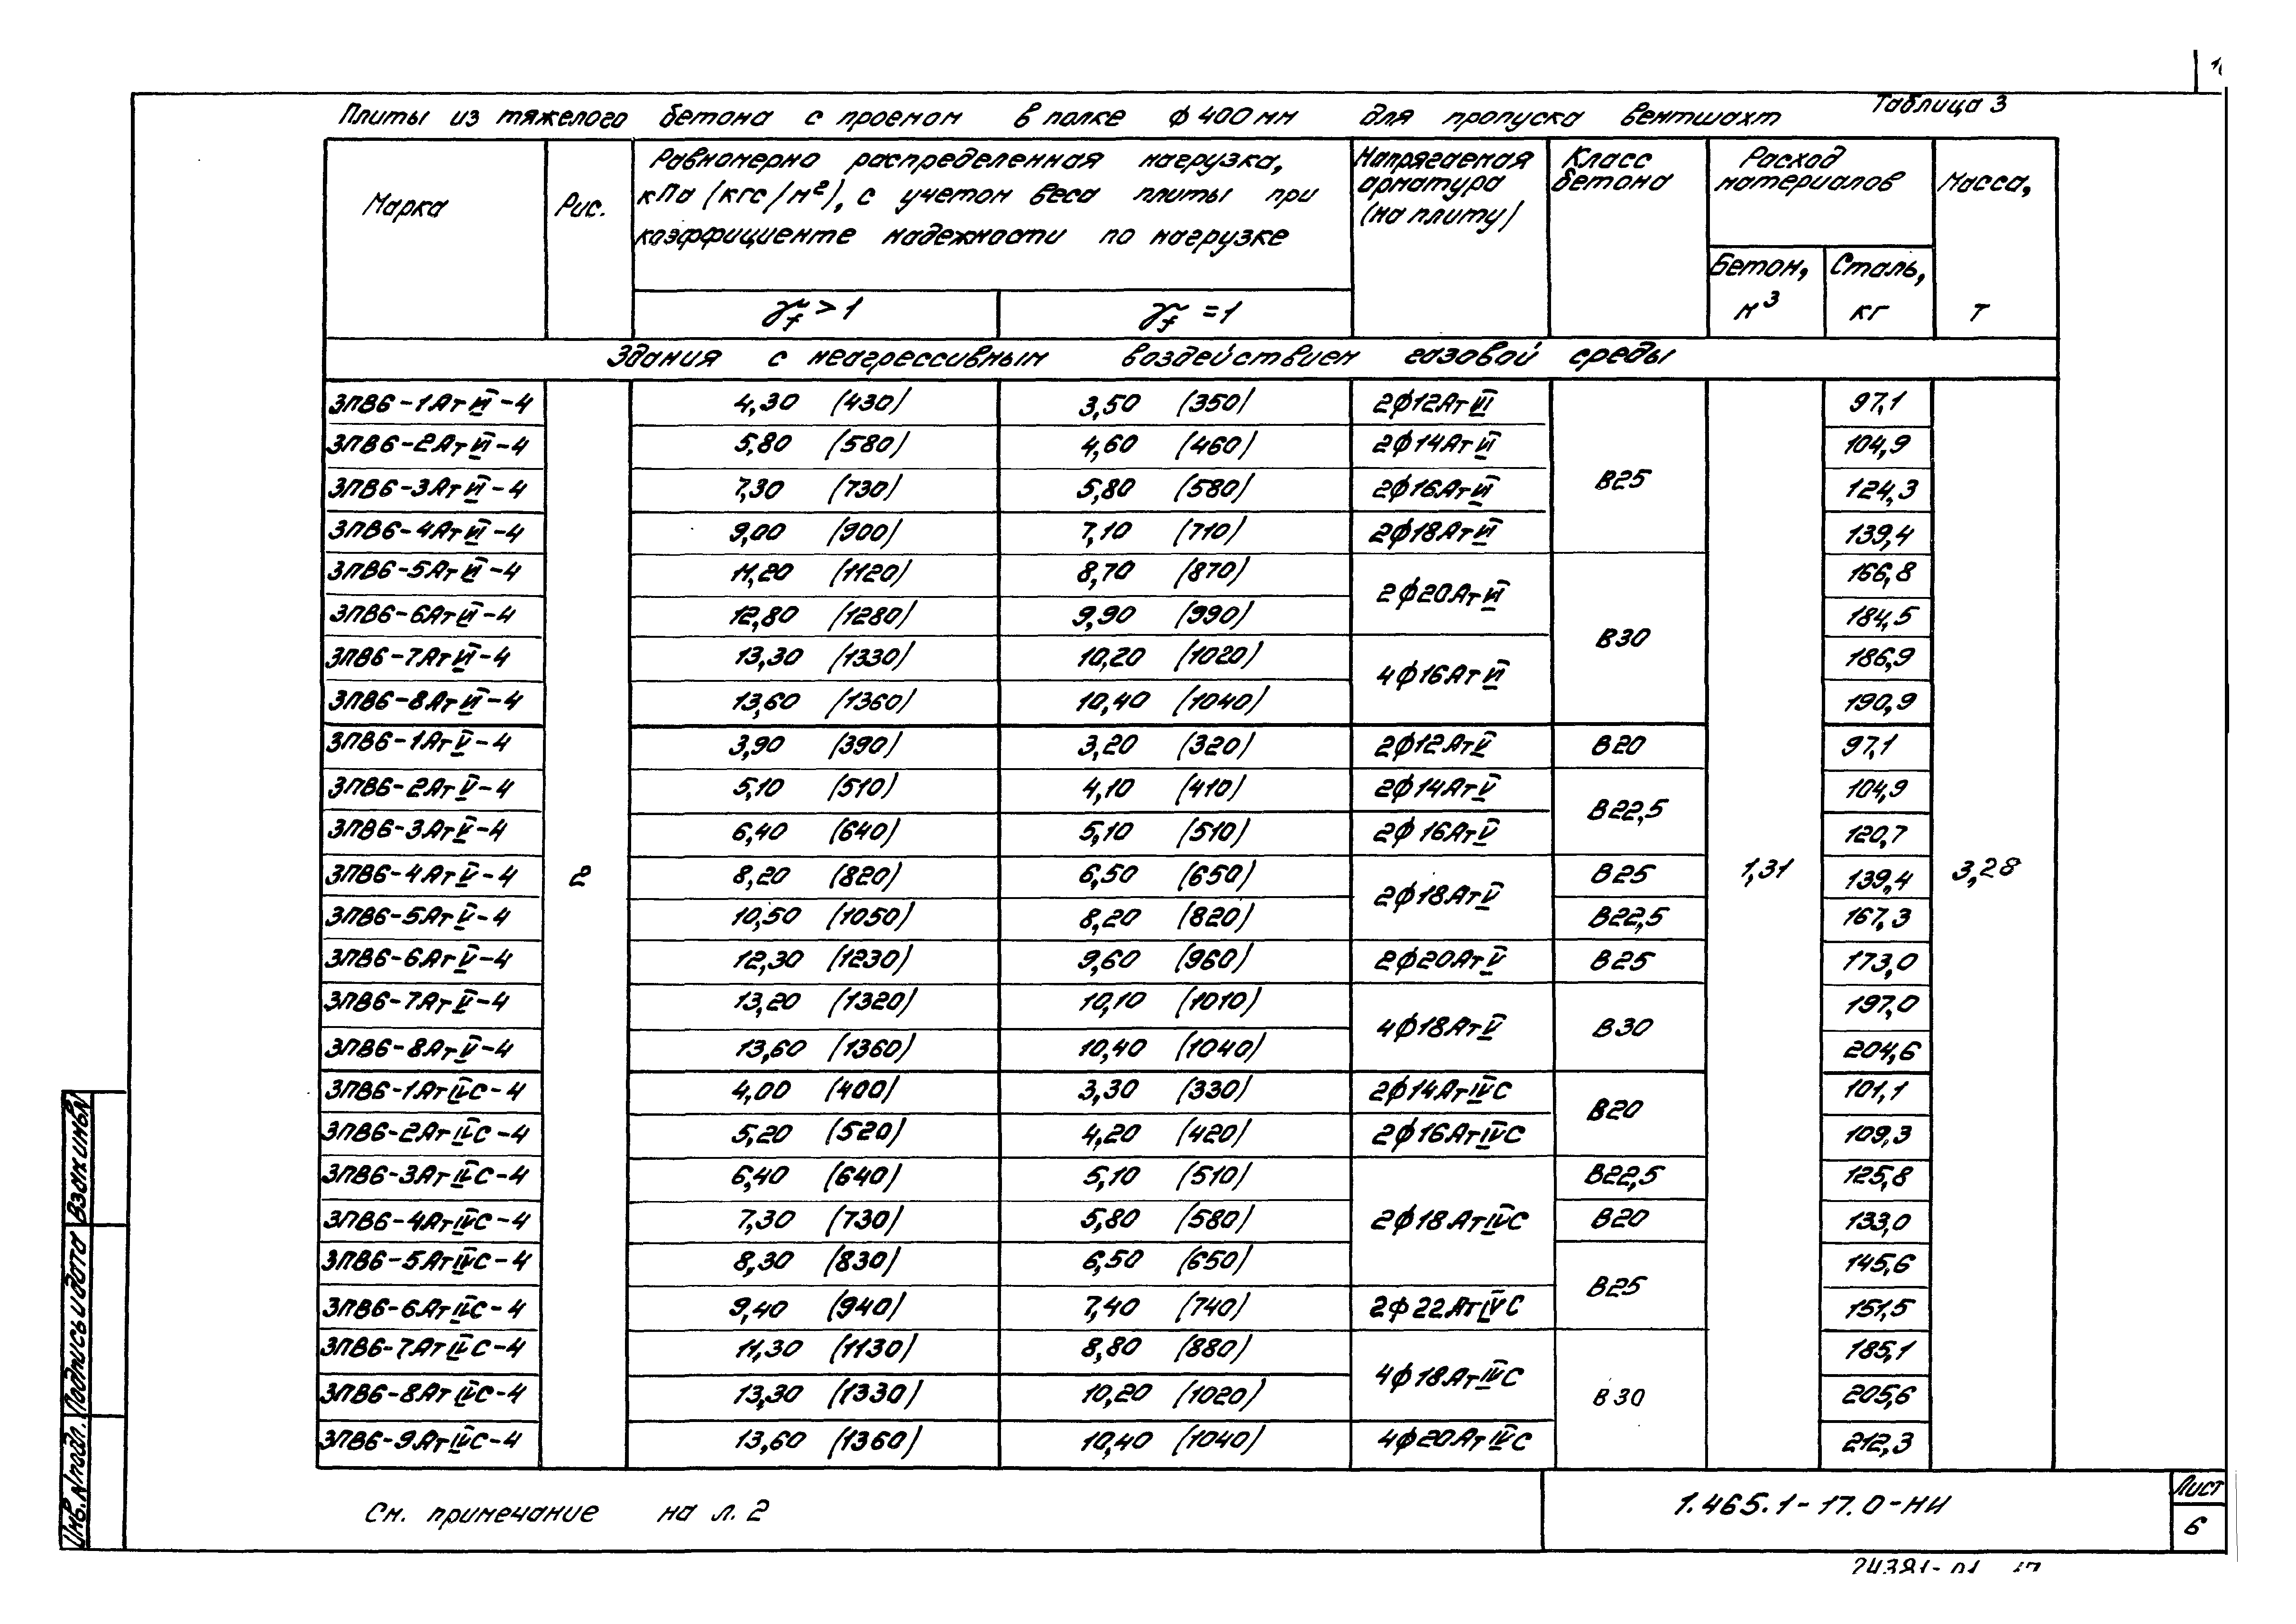 Таблица 3
Плиты из тяжелого бетона с проемом в полке ϕ400мм для пропуска вентшахт
Марка
Рис.
Равномерно распределенная нагрузка,
кПа (кгс/м²), с учетом веса плиты при
коэффициенте надежности по нагрузке
γf > 1
γf = 1
Напрягаемая
арматура
(на плиту)
Класс
бетона
Расход
материалов
Бетон,
м³
Сталь,
кг
Масса,
т
Здания с неагрессивным воздействием газовой среды
3ПВ6-1АтVI-4 4,30 (430) 3,50 (350) 2ϕ12АтVI 97,1
3ПВ6-2АтVI-4 5,80 (580) 4,60 (460) 2ϕ14АтVI 104,9
3ПВ6-3АтVI-4 7,30 (730) 5,80 (580) 2ϕ16АтVI В25 124,3
3ПВ6-4АтVI-4 9,00 (900) 7,10 (710) 2ϕ18АтVI 139,4
3ПВ6-5АтVI-4 11,20 (1120) 8,70 (870) 2ϕ20АтVI 166,8
3ПВ6-6АтVI-4 12,80 (1280) 9,90 (990) В30 184,5
3ПВ6-7АтVI-4 13,30 (1330) 10,20 (1020) 4ϕ16АтVI 186,9
3ПВ6-8АтVI-4 13,60 (1360) 10,40 (1040) 190,9
3ПВ6-1АтV-4 3,90 (390) 3,20 (320) 2ϕ12АтV В20 97,1
3ПВ6-2АтV-4 5,10 (510) 4,10 (410) 2ϕ14АтV В22,5 104,9
3ПВ6-3АтV-4 6,40 (640) 5,10 (510) 2ϕ16АтV 120,7
3ПВ6-4АтV-4 2 8,20 (820) 6,50 (650) 2ϕ18АтV В25 1,31 139,4 3,28
3ПВ6-5АтV-4 10,50 (1050) 8,20 (820) В22,5 167,3
3ПВ6-6АтV-4 12,30 (1230) 9,60 (960) 2ϕ20АтV В25 173,0
3ПВ6-7АтV-4 13,20 (1320) 10,10 (1010) 4ϕ18АтV В30 197,0
3ПВ6-8АтV-4 13,60 (1360) 10,40 (1040) 204,6
3ПВ6-1АтIVС-4 4,00 (400) 3,30 (330) 2ϕ14АтIVС В20 101,1
3ПВ6-2АтIVС-4 5,20 (520) 4,20 (420) 2ϕ16АтIVС 109,3
3ПВ6-3АтIVС-4 6,40 (640) 5,10 (510) В22,5 125,8
3ПВ6-4АтIVС-4 7,30 (730) 5,80 (580) 2ϕ18АтIVС В20 133,0
3ПВ6-5АтIVС-4 8,30 (830) 6,50 (650) В25 145,6
3ПВ6-6АтIVС-4 9,40 (940) 7,40 (740) 2ϕ22АтIVС 151,5
3ПВ6-7АтIVС-4 11,30 (1130) 8,80 (880) 4ϕ18АтIVС 185,1
3ПВ6-8АтIVС-4 13,30 (1330) 10,20 (1020) В30 205,6
3ПВ6-9АтIVС-4 13,60 (1360) 10,40 (1040) 4ϕ20АтIVС 212,3
См. примечание на л. 2
1.465.1-17.0-НИ
Лист
6
Инв.Nподл.
Подпись и дата
Взам инвN